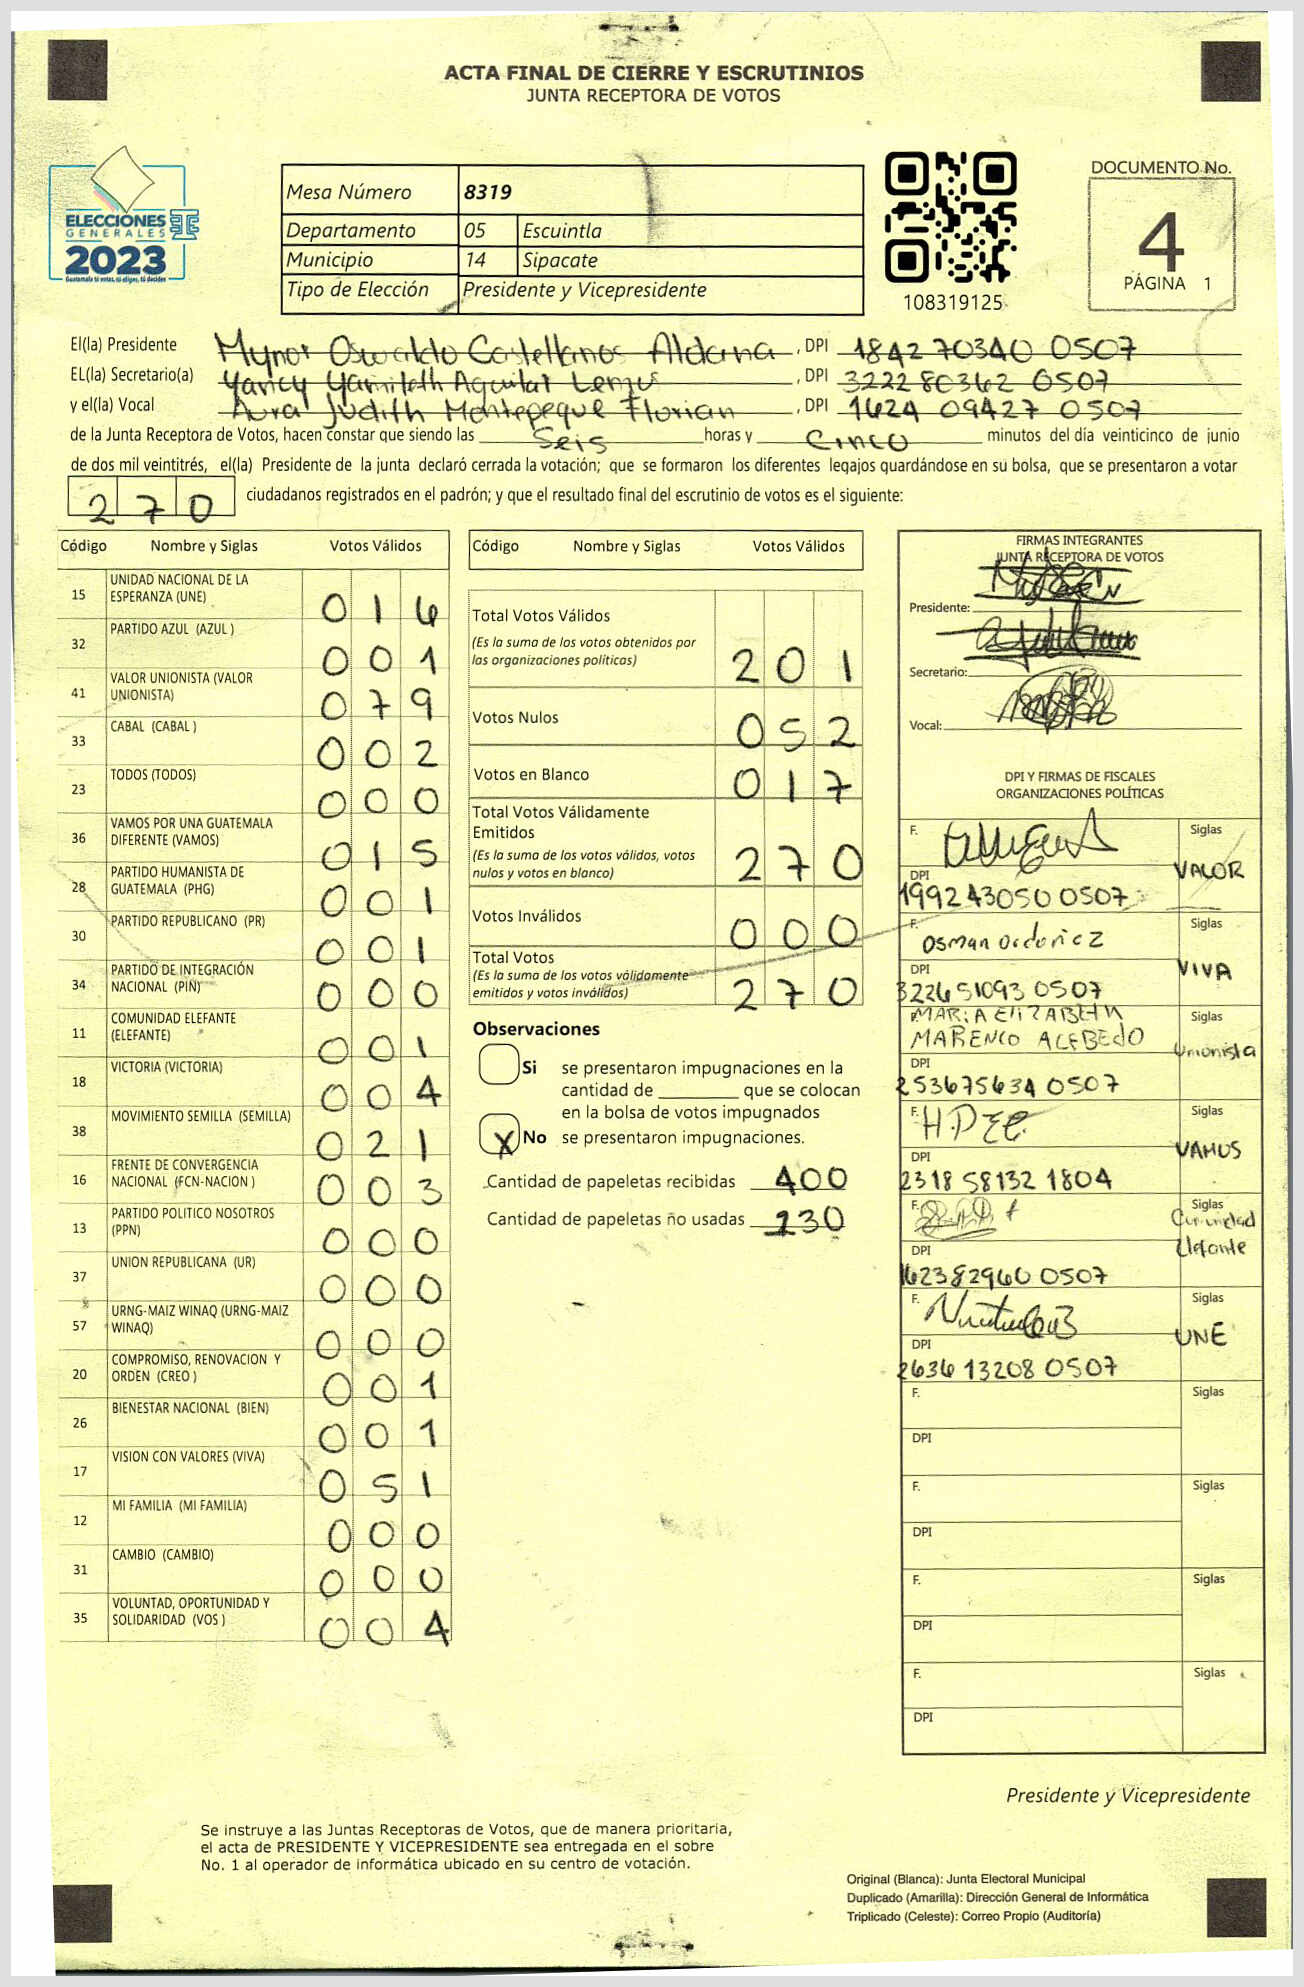 ACTA FINAL DE CIERRE Y ESCRUTINIOS
JUNTA RECEPTORA DE VOTOS
ELECCIONES
GENERALES
2023
Guatemala tú votas, tú eliges, tú decides
Mesa Número 8319
Departamento 05 Escuintla
Municipio 14 Sipacate
Tipo de Elección Presidente y Vicepresidente
108319125
DOCUMENTO No.
4
PÁGINA 1
El(la) Presidente Mynor Oswaldo Castellanos Aldana, DPI 1842 70340 0507
EL(la) Secretario(a) Yancy Yamileth Aguilar Lemus, DPI 3222 80362 0507
y el(la) Vocal Aura Judith Montepeque Florian, DPI 1624 09427 0507
de la Junta Receptora de Votos, hacen constar que siendo las Seis horas y Cinco minutos del día veinticinco de junio
de dos mil veintitrés, el(la) Presidente de la junta declaró cerrada la votación; que se formaron los diferentes legajos guardándose en su bolsa, que se presentaron a votar
270 ciudadanos registrados en el padrón; y que el resultado final del escrutinio de votos es el siguiente:
Código Nombre y Siglas Votos Válidos
15 UNIDAD NACIONAL DE LA ESPERANZA (UNE) 016
32 PARTIDO AZUL (AZUL ) 001
41 VALOR UNIONISTA (VALOR UNIONISTA) 079
33 CABAL (CABAL ) 002
23 TODOS (TODOS) 000
36 VAMOS POR UNA GUATEMALA DIFERENTE (VAMOS) 015
28 PARTIDO HUMANISTA DE GUATEMALA (PHG) 001
30 PARTIDO REPUBLICANO (PR) 001
34 PARTIDO DE INTEGRACIÓN NACIONAL (PIN) 000
11 COMUNIDAD ELEFANTE (ELEFANTE) 001
18 VICTORIA (VICTORIA) 004
38 MOVIMIENTO SEMILLA (SEMILLA) 021
16 FRENTE DE CONVERGENCIA NACIONAL (FCN-NACION ) 003
13 PARTIDO POLITICO NOSOTROS (PPN) 000
37 UNION REPUBLICANA (UR) 000
57 URNG-MAIZ WINAQ (URNG-MAIZ WINAQ) 000
20 COMPROMISO, RENOVACION Y ORDEN (CREO ) 001
26 BIENESTAR NACIONAL (BIEN) 001
17 VISION CON VALORES (VIVA) 051
12 MI FAMILIA (MI FAMILIA) 000
31 CAMBIO (CAMBIO) 000
35 VOLUNTAD, OPORTUNIDAD Y SOLIDARIDAD (VOS ) 004
Código Nombre y Siglas Votos Válidos
Total Votos Válidos
(Es la suma de los votos obtenidos por
las organizaciones políticas) 201
Votos Nulos 052
Votos en Blanco 017
Total Votos Válidamente
Emitidos
(Es la suma de los votos válidos, votos
nulos y votos en blanco) 270
Votos Inválidos 000
Total Votos
(Es la suma de los votos válidamente
emitidos y votos inválidos) 270
Observaciones
Si se presentaron impugnaciones en la
cantidad de ________ que se colocan
en la bolsa de votos impugnados
X No se presentaron impugnaciones.
Cantidad de papeletas recibidas 400
Cantidad de papeletas no usadas 130
FIRMAS INTEGRANTES
JUNTA RECEPTORA DE VOTOS
Presidente:
Secretario:
Vocal:
DPI Y FIRMAS DE FISCALES
ORGANIZACIONES POLÍTICAS
F. Siglas
VALOR
DPI
1992 43050 0507
F. Osman Ordoñez Siglas
VIVA
DPI
3226 51093 0507
MARIA ELIZABETH Siglas
MARENCO ACEBEDO Unionista
DPI
2536 75634 0507
F. H.P Siglas
VAMOS
DPI
2318 58132 1804
F. Siglas
Comunidad
Elefante
DPI
1623 82960 0507
F. Siglas
UNE
DPI
2636 13208 0507
F. Siglas
DPI
F. Siglas
DPI
F. Siglas
DPI
F. Siglas
DPI
Presidente y Vicepresidente
Se instruye a las Juntas Receptoras de Votos, que de manera prioritaria,
el acta de PRESIDENTE Y VICEPRESIDENTE sea entregada en el sobre
No. 1 al operador de informática ubicado en su centro de votación.
Original (Blanca): Junta Electoral Municipal
Duplicado (Amarilla): Dirección General de Informática
Triplicado (Celeste): Correo Propio (Auditoría)